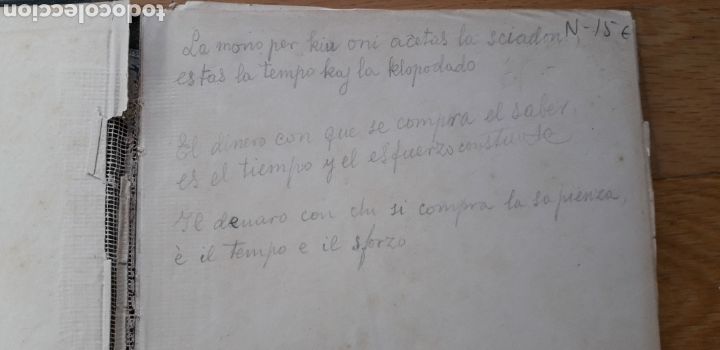 todocoleccion
N-15 €
La mono per kiu oni aĉetas la sciadon,
estas la tempo kaj la klopodado
El dinero con que se compra el saber,
es el tiempo y el esfuerzo constante
Il denaro con chi si compra la sapienza,
è il tempo e il sforzo